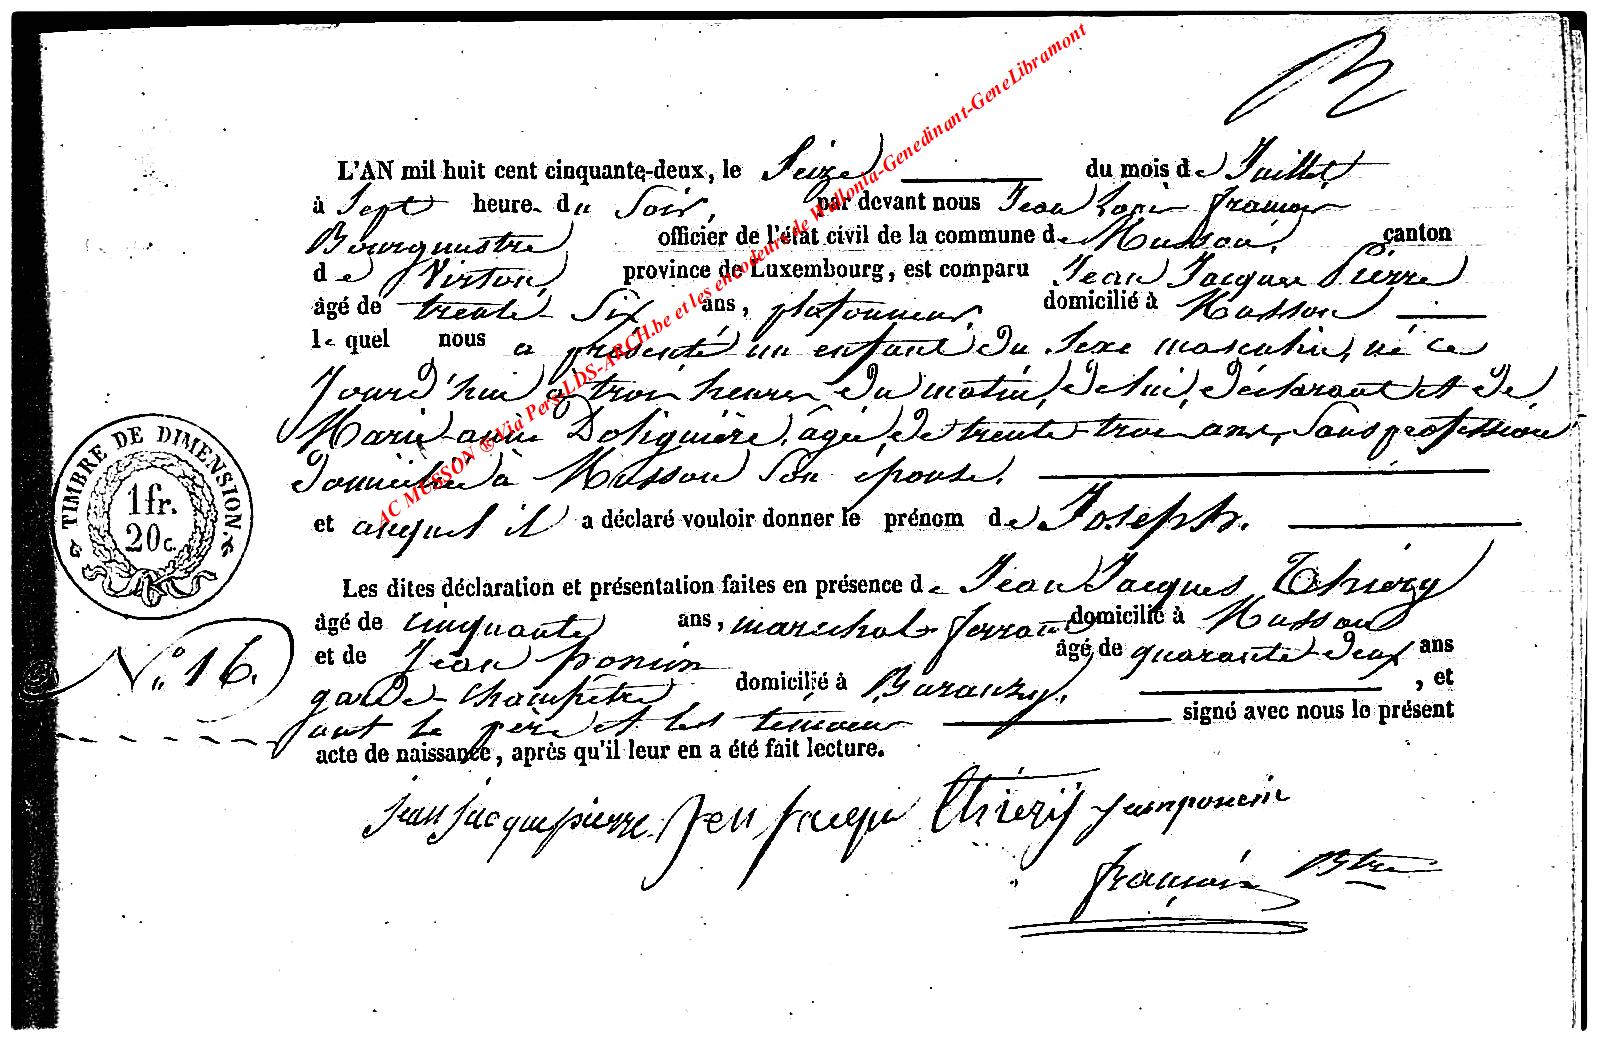 L'AN mil huit cent cinquante-deux, le Seize du mois de Juillet
à Sept heure du Soir, par devant nous Jean Louis françois
Bourgmestre officier de l'état civil de la commune de Musson, canton
de Virton, province de Luxembourg, est comparu Jean Jacques Pierre
âgé de trente Six ans, plafonneur domicilié à Musson
le quel nous a présenté un enfant du Sexe masculin, né ce
Jourd'hui à trois heures du matin, de lui, déclarant et de
Marie anne Doliguière, âgée de trente trois ans, Sans profession
domiciliée à Musson Son épouse.
et auquel il a déclaré vouloir donner le prénom de Joseph.
Les dites déclaration et présentation faites en présence de Jean Jacques Thiéry
âgé de cinquante ans, marechal ferrant domicilié à Musson
et de Jean ponsin âgé de quarante deux ans
garde-Champêtre domicilié à Baranzy. , et
ont le père et les temoins signé avec nous le présent
acte de naissance, après qu'il leur en a été fait lecture.
jean jacque pierre Jean Jacque Thiery Jean ponsin
françois Btre
TIMBRE DE DIMENSION.
1 fr.
20 c.
N.° 16.
AC MUSSON ® Via Pers.LDS-ARCH.be et les encodeurs de Wallonia-Genedinant-GeneLibramont